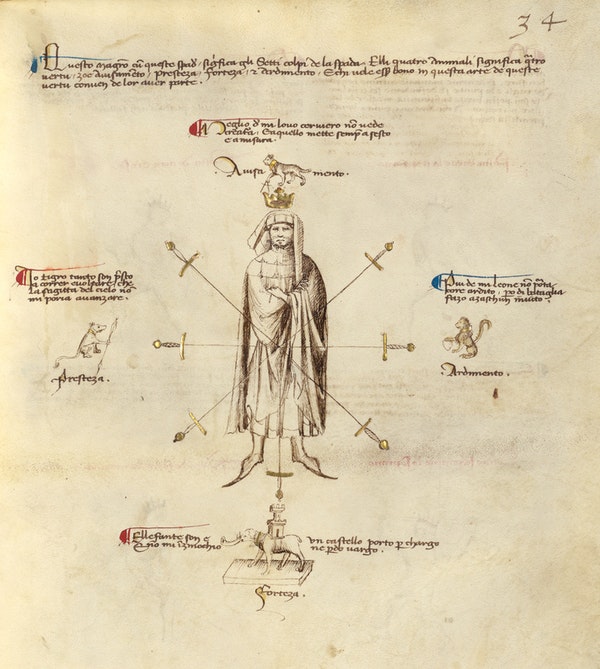 34
Questo magro cũ queste spad sigñfica gli Setti colpi de la spada. Elli quatro animali significa q̃tro
vertù, zoe avisamẽto, presteza, forteza, et ardimento. E chi vole ess̉ bono in questa arte de queste
vertù conven de lor aver parte.
Meglio d̉ mi lovo cerviero nõ vede
creatura. Eaquello mette semp̉ a sesto
e a misura.
Avisamento.
Yo tigro tanto son p̉sto
a correr e voltare, che
la sagitta del cielo nõ
mi poria avanzare.
Più de mi leone nõ porta
core ardito, però di bataglia
fazo a zaschun invito.
Presteza.
Ardimento.
Ellefante son e un castello porto p̉ chargo
E nõ mi inzenochio ne p̉do vargo.
Forteza.